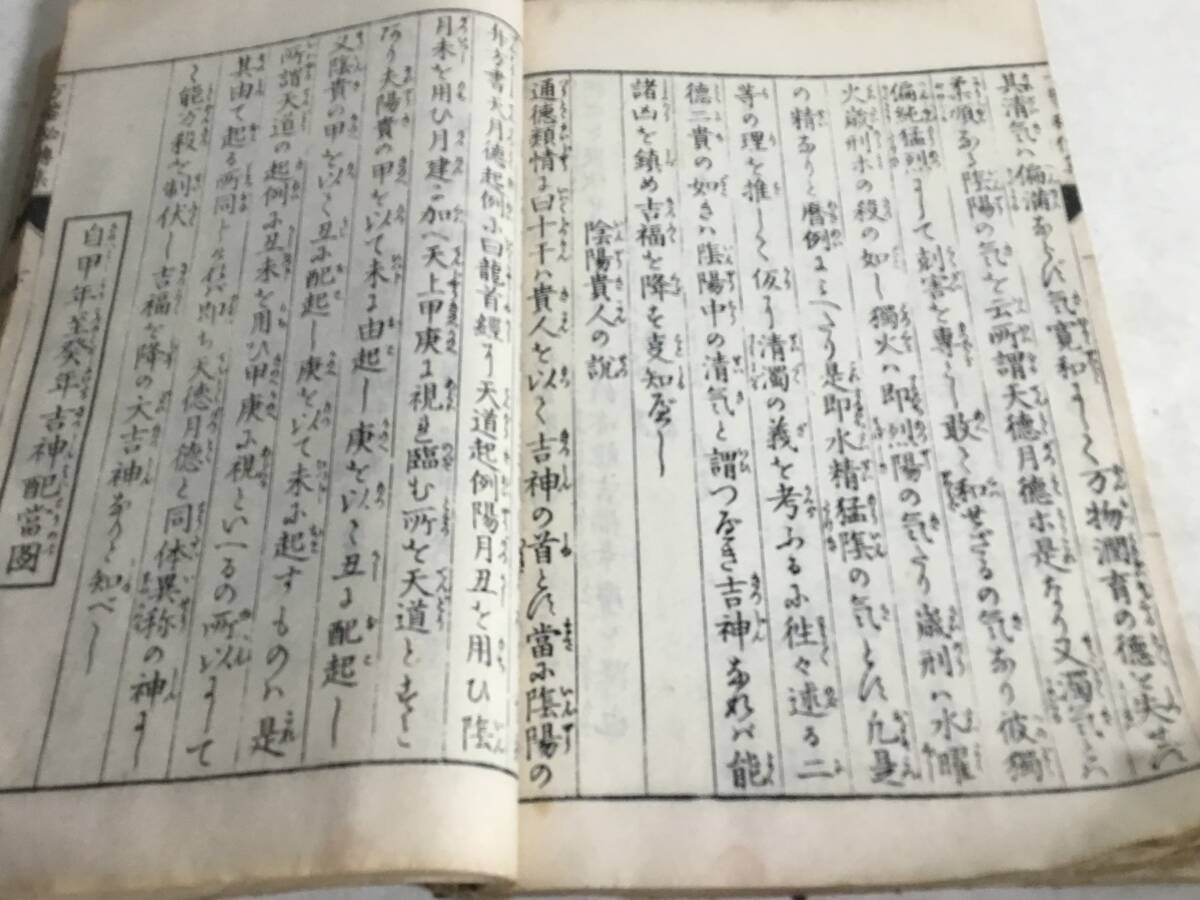 其清気ハ偏満ならず気寛和にして万物潤育の徳を失せバ
柔順なる陰陽の気を云所謂天徳月徳ホ是なり又濁気とハ
偏純猛烈にして刻害を専らし敢て和せざるの気なり彼獨
火歳刑ホの殺の如し獨火ハ即烈陽の気なり歳刑ハ水曜
の精なりと暦例にいへり是即水精猛陰の気とす凡是
等の理を推して仮に清濁の義を考ふるに往々述る二
徳二貴の如きハ陰陽中の清気と謂つべき吉神なれバ能
諸凶を鎮め吉福を降を支知べし
陰陽貴人の説
通徳類情に曰十干ハ貴人を以て吉神の首とす當に陰陽の
弁方書天月徳起例に曰龍首經に天道起例陽月丑を用ひ陰
月未を用ひ月建に加へ天上甲庚に視ミ臨む所を天道とすと
あり夫陽貴の甲を以て未に由起し庚を以て丑に配起し
又陰貴の甲を以て丑に配起し庚を以て未に起すものハ是
所謂天道の起例に丑未を用ひ甲庚に視といへるの所以にして
其由て起る所同じ即ち天徳月徳と同体異称の神に
て能方殺を制伏し吉福を降の大吉神なりと知べし
自甲年至癸年吉神配當圖